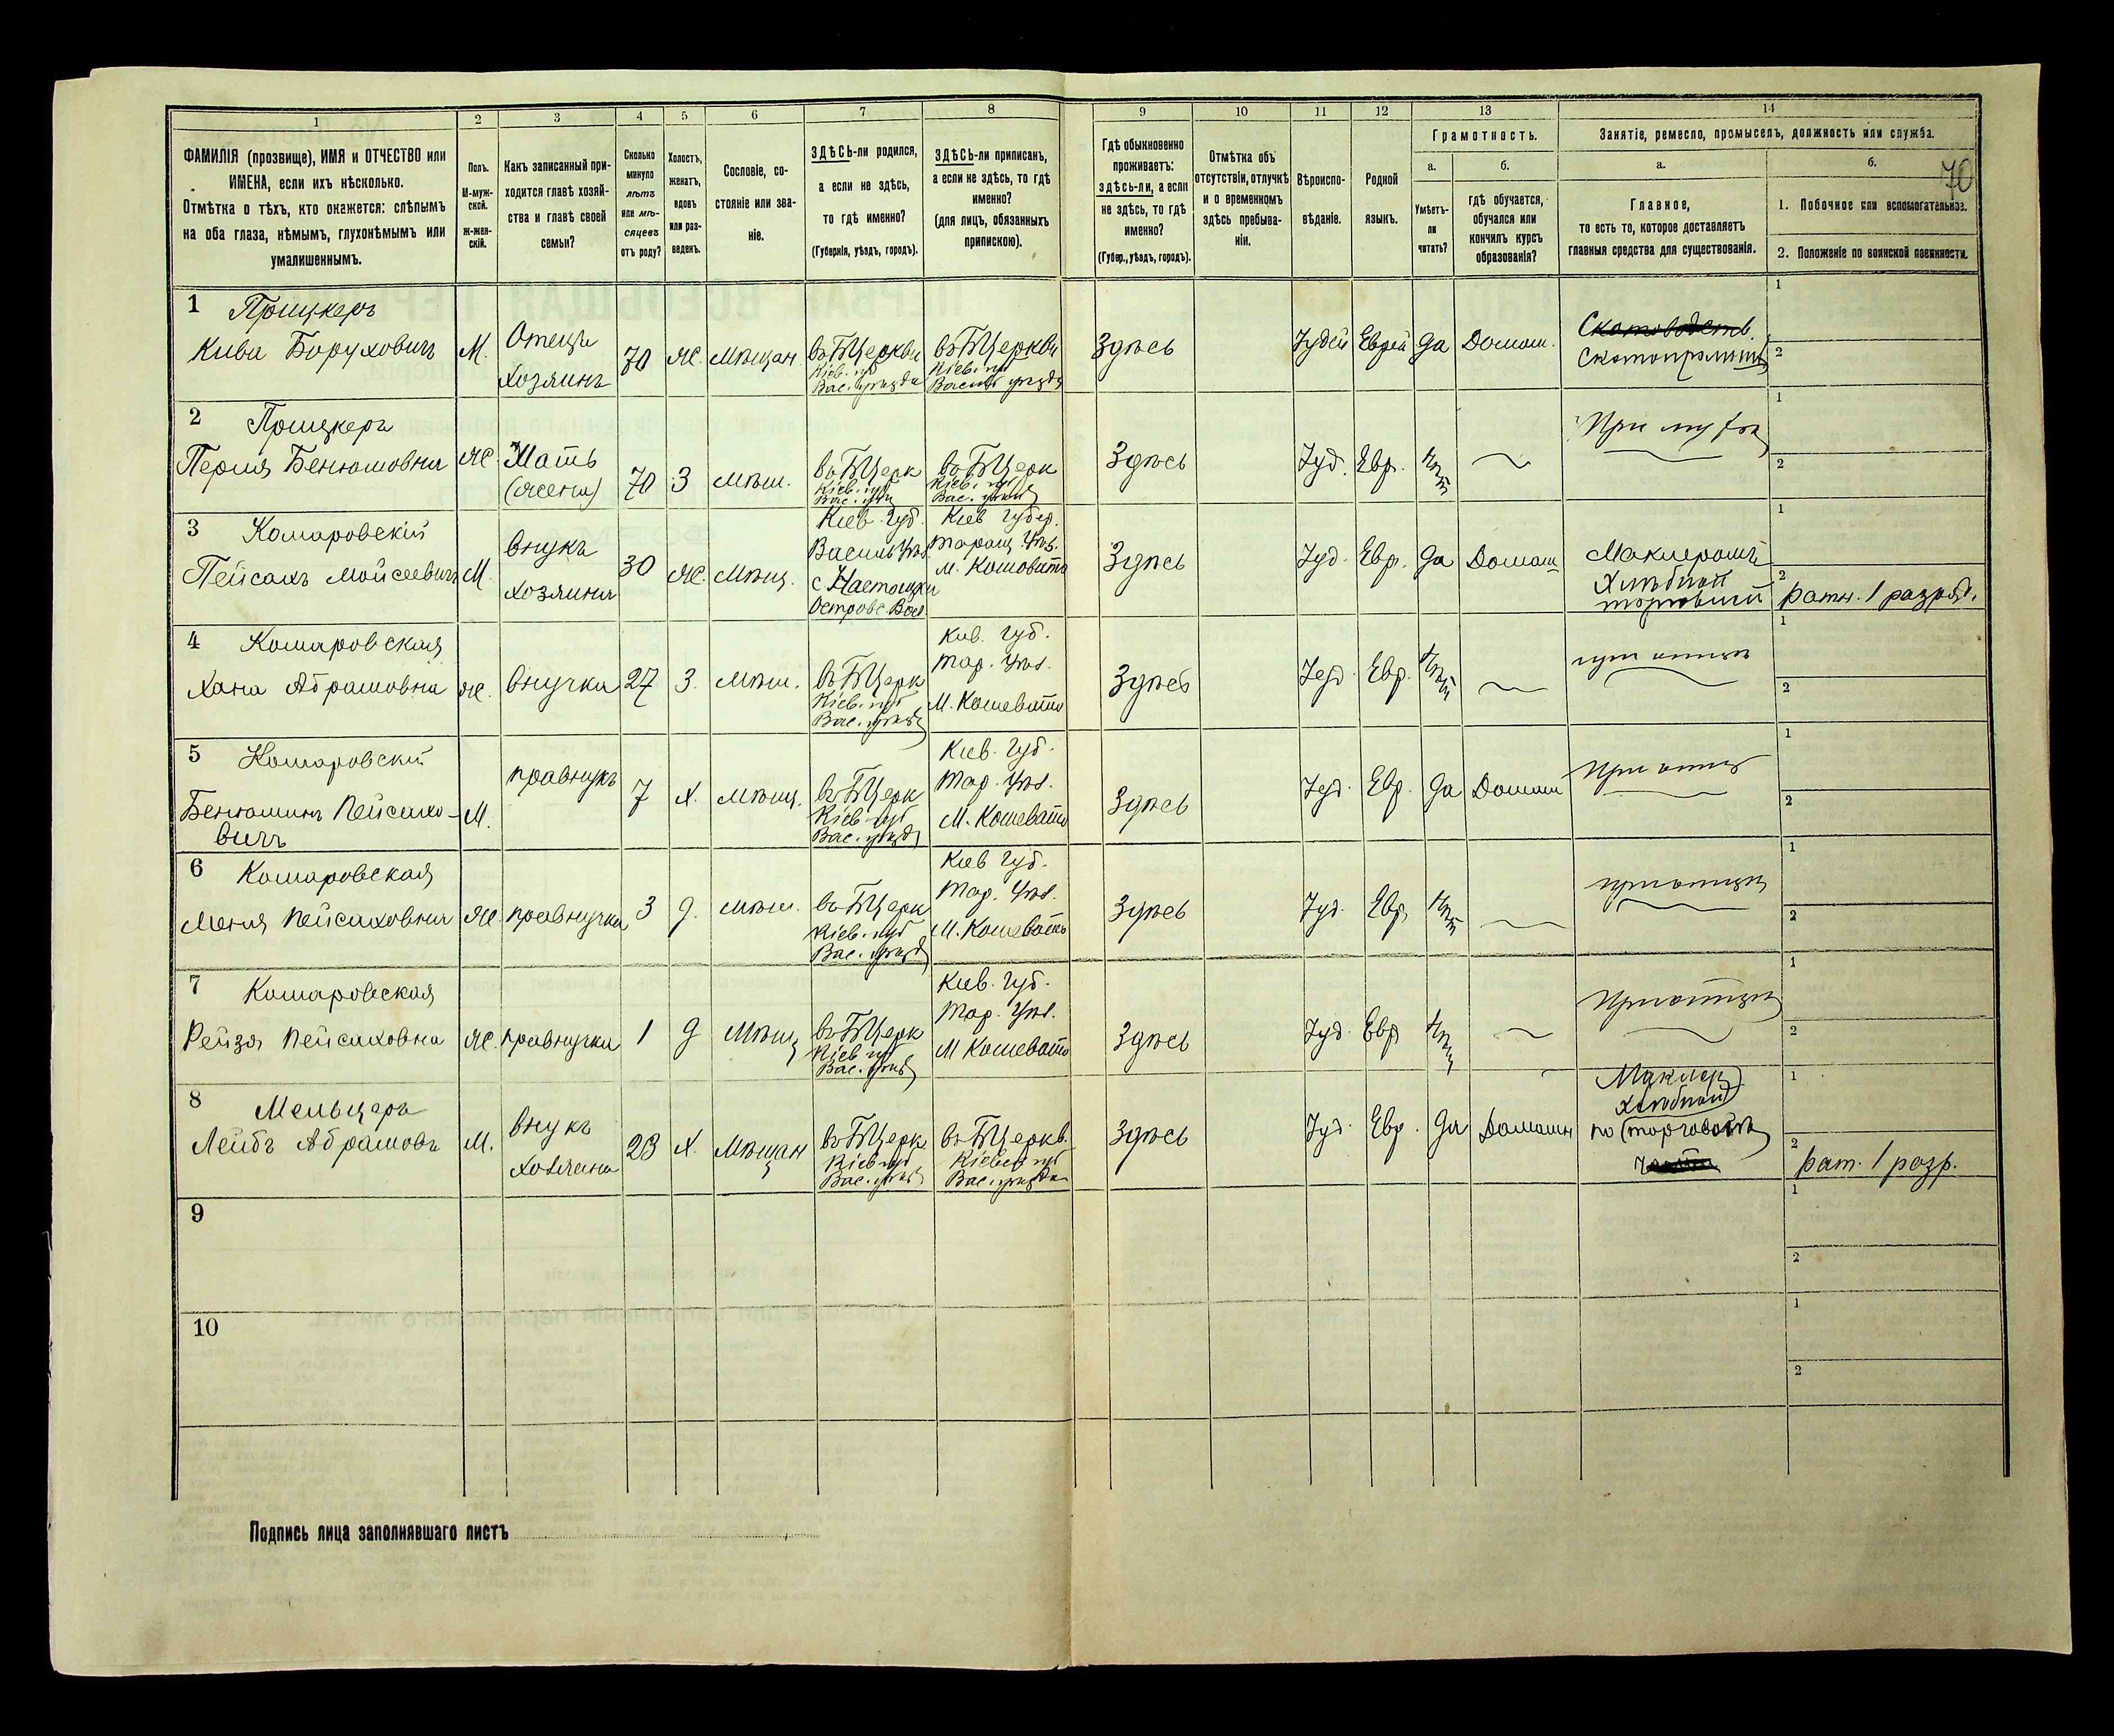 1 2 3 4 5 6 7 8 9 10 11 12 13 14
ФАМИЛІЯ (прозвище), ИМЯ и ОТЧЕСТВО или
ИМЕНА, если ихъ нѣсколько.
Отмѣтка о тѣхъ, кто окажется: слѣпымъ
на оба глаза, нѣмымъ, глухонѣмымъ или
умалишеннымъ.
Полъ.
М-муж-
ской.
Ж-жен-
скій.
Какъ записанный при-
ходится главѣ хозяй-
ства и главѣ своей
семьи?
Сколько
минуло
лѣтъ
или мѣ-
сяцевъ
отъ роду?
Холостъ,
женатъ,
вдовъ
или раз-
веденъ.
Сословіе, со-
стояніе или зва-
ніе.
ЗДѢСЬ-ли родился,
а если не здѣсь,
то гдѣ именно?
(Губернія, уѣздъ, городъ).
ЗДѢСЬ-ли приписанъ,
а если не здѣсь, то гдѣ
именно?
(для лицъ, обязанныхъ
припискою).
Гдѣ обыкновенно
проживаетъ:
здѣсь-ли, а если
не здѣсь, то гдѣ
именно?
(Губер., уѣздъ, городъ).
Отмѣтка объ
отсутствіи, отлучкѣ
и о временномъ
здѣсь пребыва-
ніи.
Вѣроиспо-
вѣданіе.
Родной
языкъ.
Грамотность.
а.
Умѣетъ-
ли
читать?
б.
гдѣ обучается,
обучался или
кончилъ курсъ
образованія?
Занятіе, ремесло, промыселъ, должность или служба.
а.
Главное,
то есть то, которое доставляетъ
главныя средства для существованія.
б.
70
1. Побочное или вспомогательное.
2. Положеніе по воинской повинности.
1 Прицкеръ
Кива Боруховичъ М. Отецъ
Хозяинъ
70 Ж. Мѣщан
въ БЦеркви
Кіев. губ
Вас. уѣзда
въ БЦеркви
Кіев. губ
Васил уѣзда
Здѣсь Іудей Еврей да Домаш.
Скотоводств.
Скотопромыш
1
2
2 Прицкеръ
Перля Бенюмовна Ж. Мать
(жена)
70 З Мѣщ.
въ БЦерк
Кіев. губ
Вас. уѣз
въ БЦерк
Кіев. губ
Вас. уѣзд
Здѣсь Іуд. Евр. Нѣт
При мужѣ
1
2
3 Комаровскій
Пейсахъ Мойсеевичъ М.
внукъ
хозяина
30 Ж. Мѣщ.
Кіев. Губ.
Василь Уѣз.
с Настошки
Островс. Вол
Кіев Губер.
Таращ Уѣз.
м. Кошовато
Здѣсь Іуд. Евр. да Домаш
Маклеромъ
Хлѣбной
торговли
1
2
ратн. 1 разряд.
4 Комаровская
Хана Абрамовна Ж. внучка 27 З. Мѣщ.
въ БЦерк
Кіев. губ
Вас. уѣзд
Кіев. Губ.
Тар. Уѣз.
М. Кошевато
Здѣсь Іуд. Евр. Нѣт
при отцѣ
1
2
5 Комаровскій
Бенюминъ Пейсахо-
вичъ
М. правнукъ 7 Х. Мѣщ.
въ БЦерк
Кіев губ
Вас. уѣзд
Кіев. Губ.
Тар. Уѣз.
М. Кошевато
Здѣсь Іуд. Евр. да Домаш
При отцѣ
1
2
6 Комаровская
Меня Пейсаховна Ж правнучка 3 д. мѣщ.
въ БЦерк
Кіев. губ
Вас. уѣзд
Кіев Губ.
Тар. Уѣз.
М. Кошевато
Здѣсь Іуд. Евр. Нѣт
при отцѣ
1
2
7 Комаровская
Рейза Пейсаховна Ж. правнучка 1 д Мѣщ
въ БЦерк
Кіев губ
Вас. уѣзд
Кіев. Губ.
Тар. Уѣз.
М Кошевато
Здѣсь Іуд. Евр Нѣт
При отцѣ
1
2
8 Мельцеръ
Лейбъ Абрамовъ М.
внукъ
хозяина
23 Х. Мѣщан
въ БЦерк
Кіев губ
Вас. уѣзд
въ БЦеркв.
Кіевск губ
Вас. уѣзда
Здѣсь Іуд. Евр. да Домашн
Маклер
хлѣбной
по торговлѣ
1
2
рат. 1 разр.
9
1
2
10
1
2
Подпись лица заполнявшаго листъ